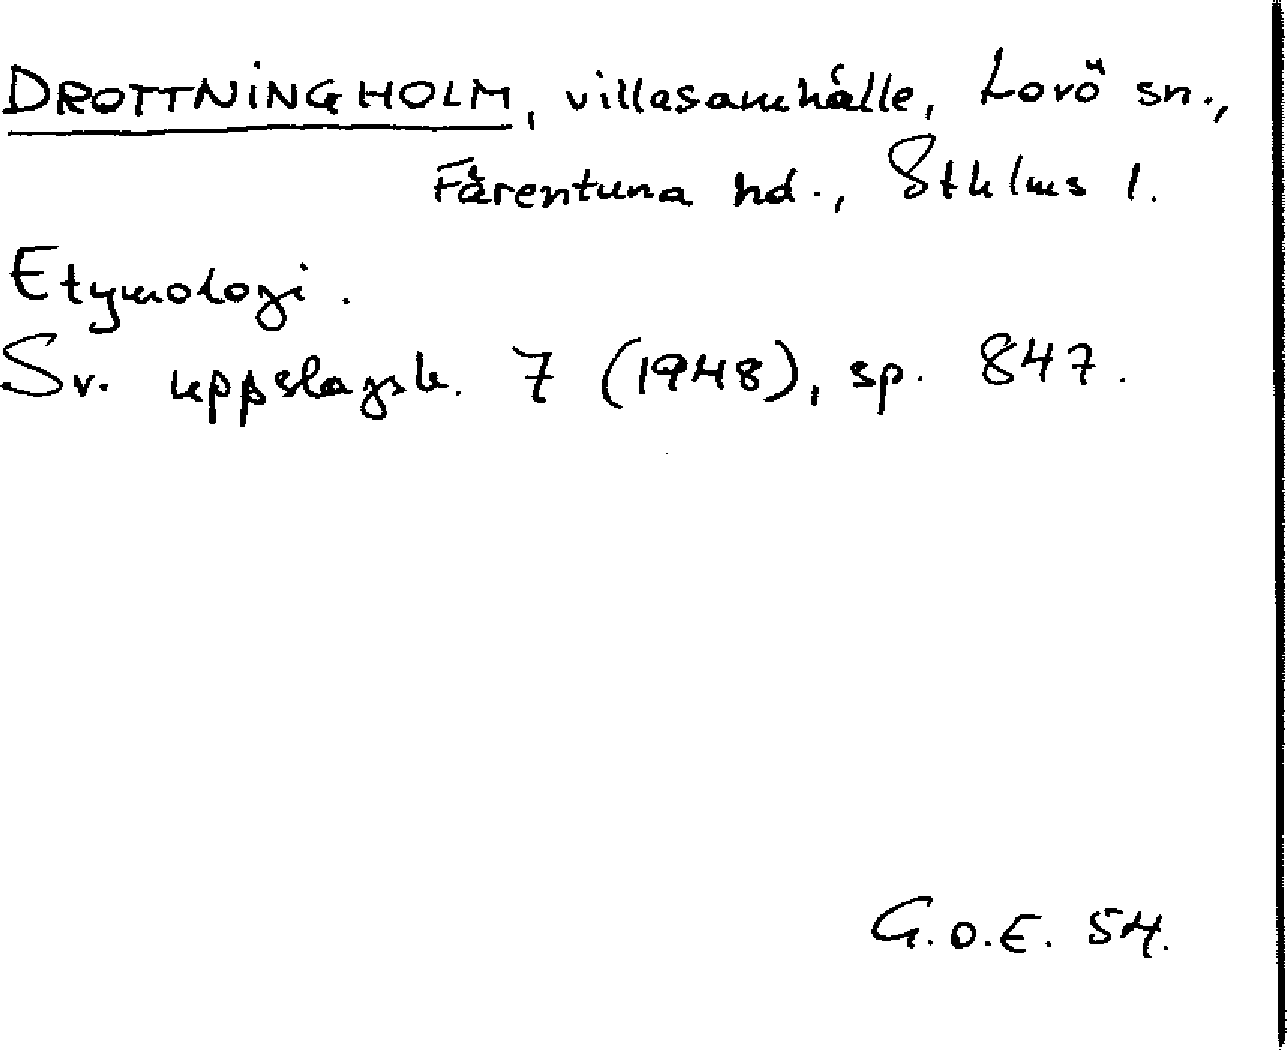 DROTTNINGHOLM, villasamhälle, Lovö sn.,
Färentuna hd., Sthlms l.
Etymologi.
Sv. uppslagsb. 7 (1948), sp. 847.
G.O.E. 54.